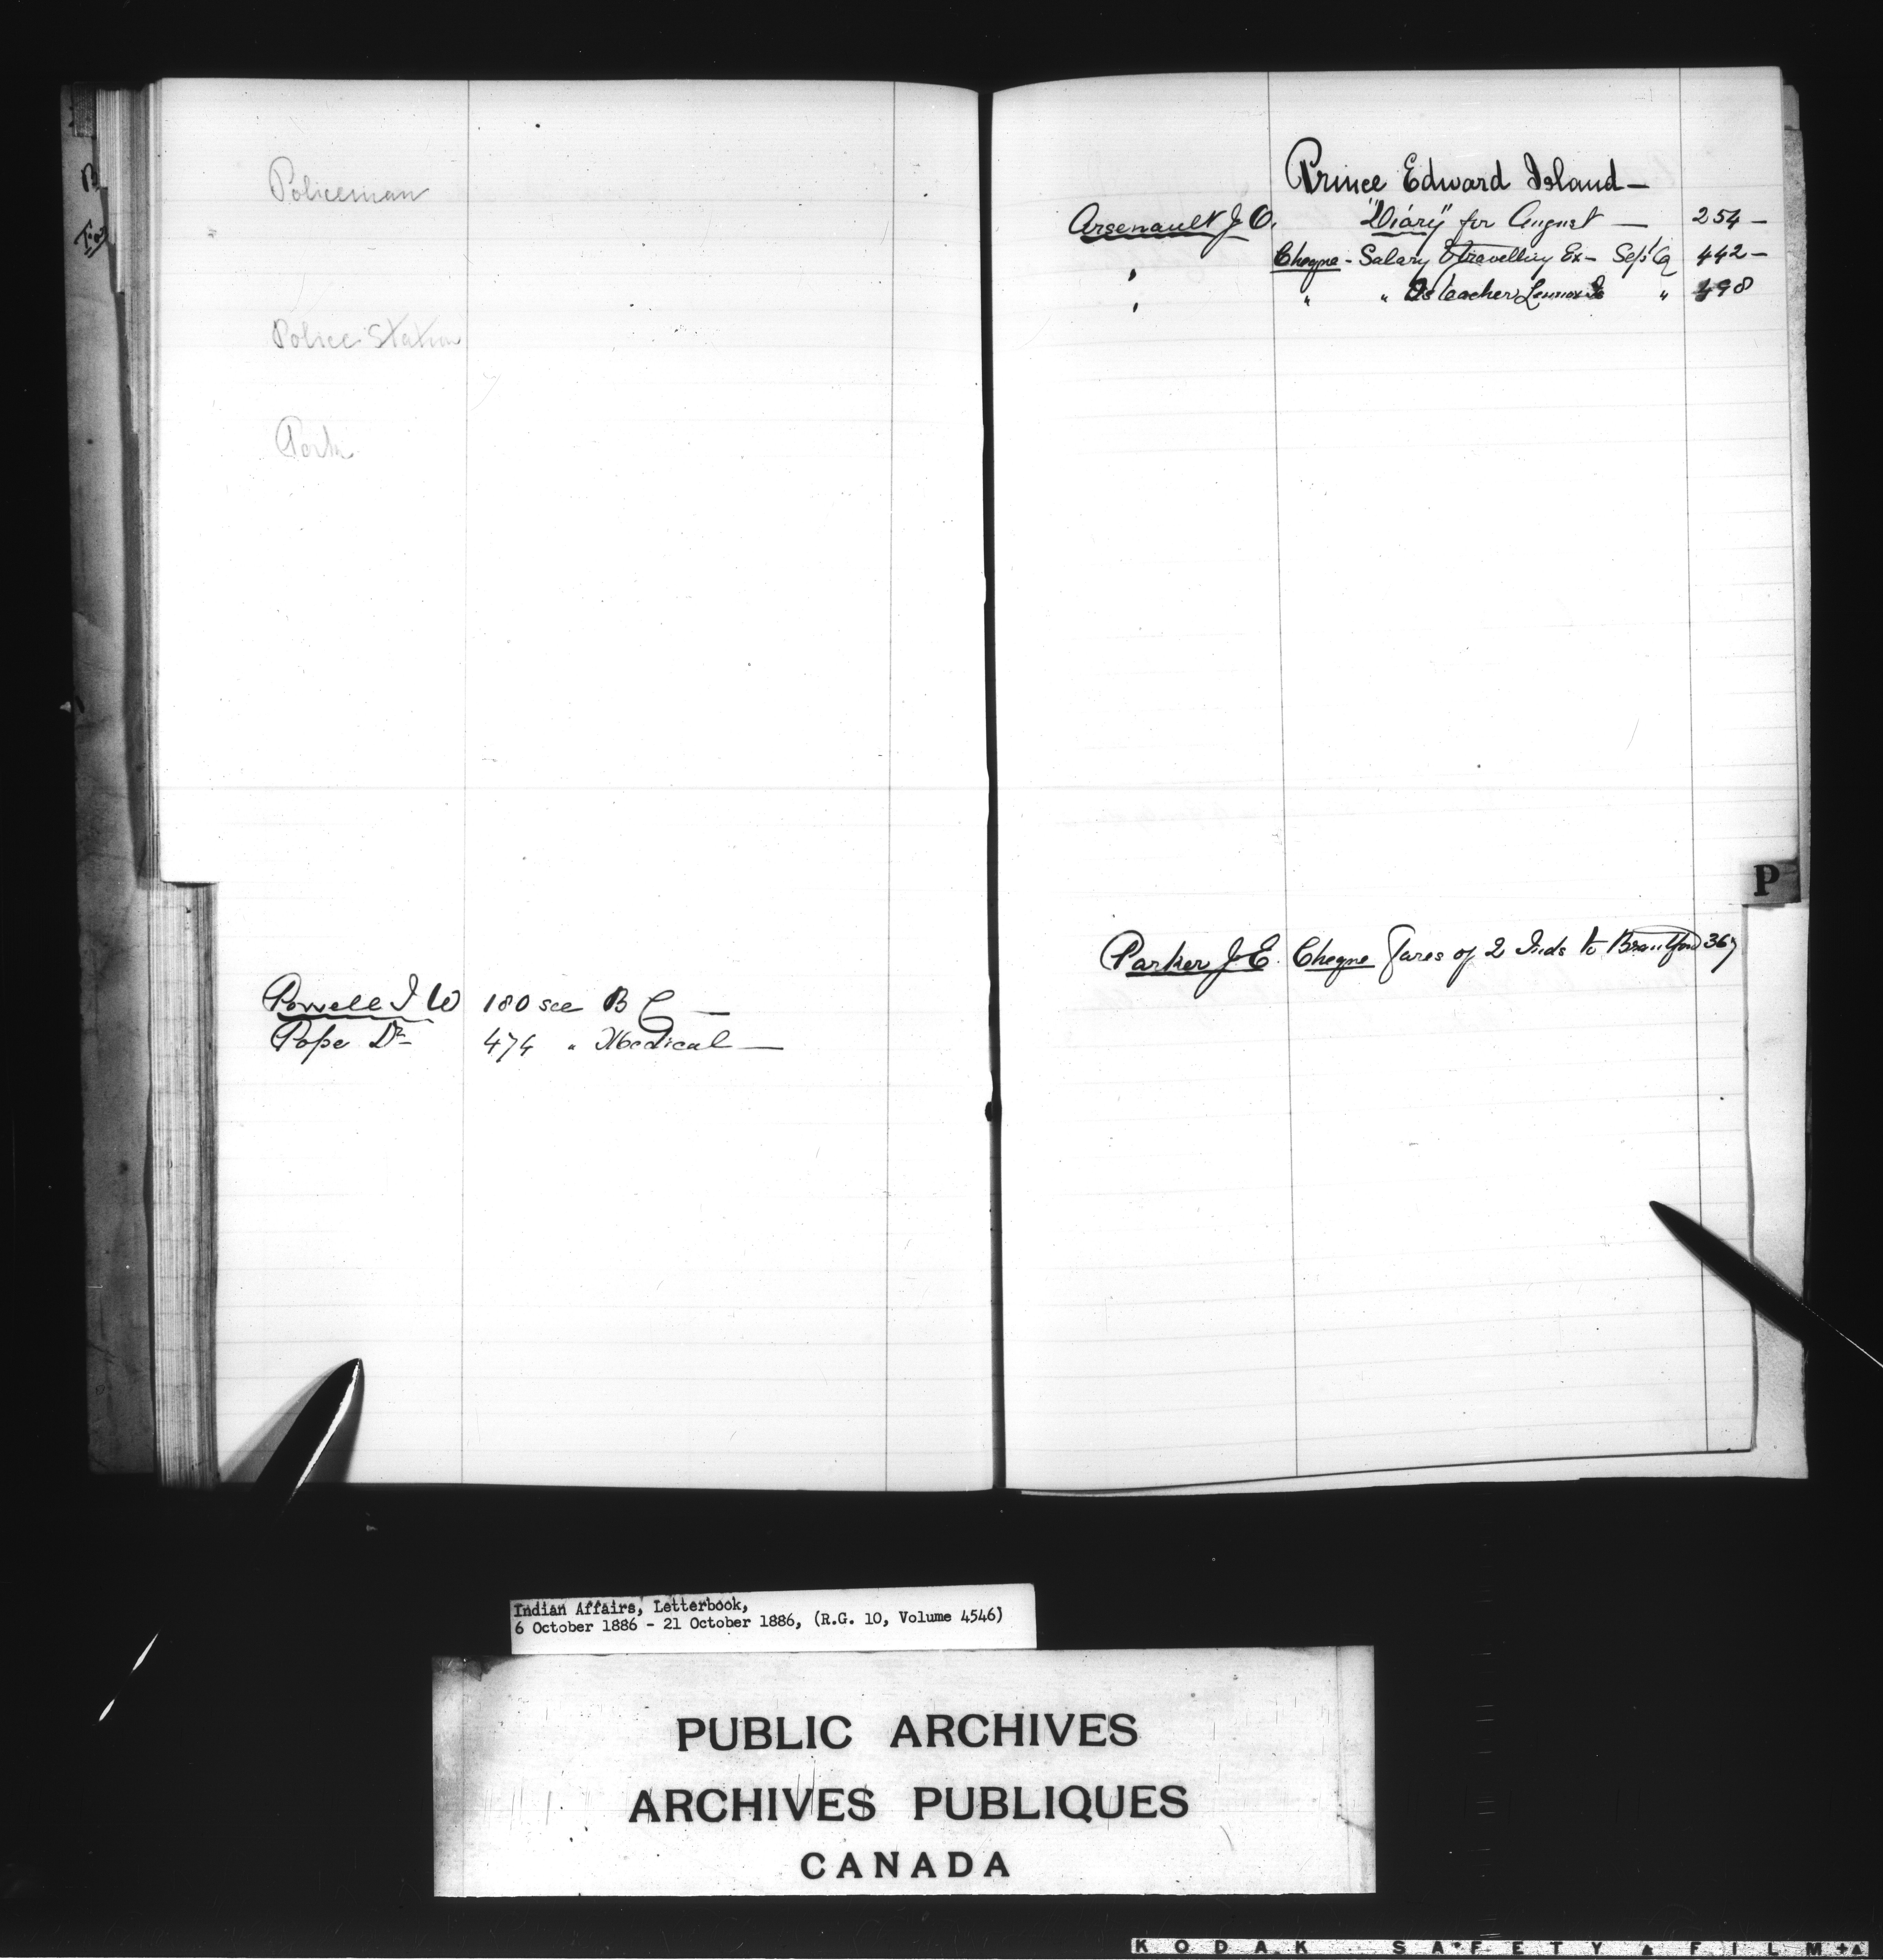 Policeman
Police Station
Pork
Powell I W 180 see B C —
Pope Dr 474 " Medical —
Prince Edward Island —
Arsenault J O. "Diary" for August — 254 —
" Cheque - Salary & travelling Ex - Sept Q 442 —
" " " As teacher Lennox Is " 498
P
Parker J. E. Cheque Fares of 2 Inds to Brantford 367
Indian Affairs, Letterbook,
6 October 1886 - 21 October 1886, (R.G. 10, Volume 4546)
PUBLIC ARCHIVES
ARCHIVES PUBLIQUES
CANADA
KODAK SAFETY FILM